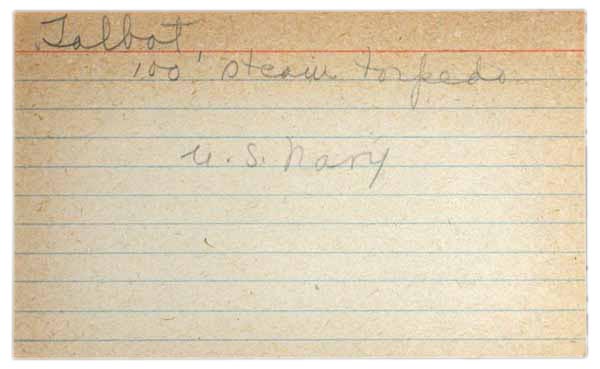 Talbot
100' steam torpedo
U.S. Navy